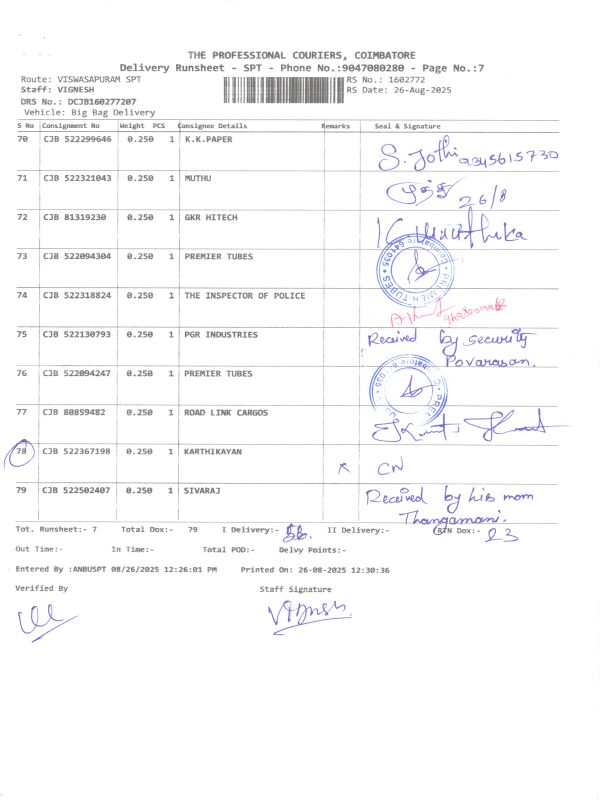 THE PROFESSIONAL COURIERS, COIMBATORE
Delivery Runsheet - SPT - Phone No.:9047080280 - Page No.:7
Route: VISWASAPURAM SPT RS No.: 1602772
Staff: VIGNESH RS Date: 26-Aug-2025
DRS No.: DCJB160277207
Vehicle: Big Bag Delivery
S No Consignment No Weight PCS Consignee Details Remarks Seal & Signature
70 CJB 522299646 0.250 1 K.K.PAPER S. Jothi 9345615730
71 CJB 522321043 0.250 1 MUTHU முத்து 26/8
72 CJB 81319230 0.250 1 GKR HITECH
73 CJB 522094304 0.250 1 PREMIER TUBES PREMIER TUBES Coimbatore 641035
74 CJB 522318824 0.250 1 THE INSPECTOR OF POLICE
75 CJB 522130793 0.250 1 PGR INDUSTRIES Received by security
Povarasan.
76 CJB 522094247 0.250 1 PREMIER TUBES
77 CJB 80859482 0.250 1 ROAD LINK CARGOS
78 CJB 522367198 0.250 1 KARTHIKAYAN CN
79 CJB 522502407 0.250 1 SIVARAJ Received by his mom
Thangamani.
Tot. Runsheet:- 7 Total Dox:- 79 I Delivery:- 56. II Delivery:- RTN Dox:- 23
Out Time:- In Time:- Total POD:- Delvy Points:-
Entered By :ANBUSPT 08/26/2025 12:26:01 PM Printed On: 26-08-2025 12:30:36
Verified By Staff Signature